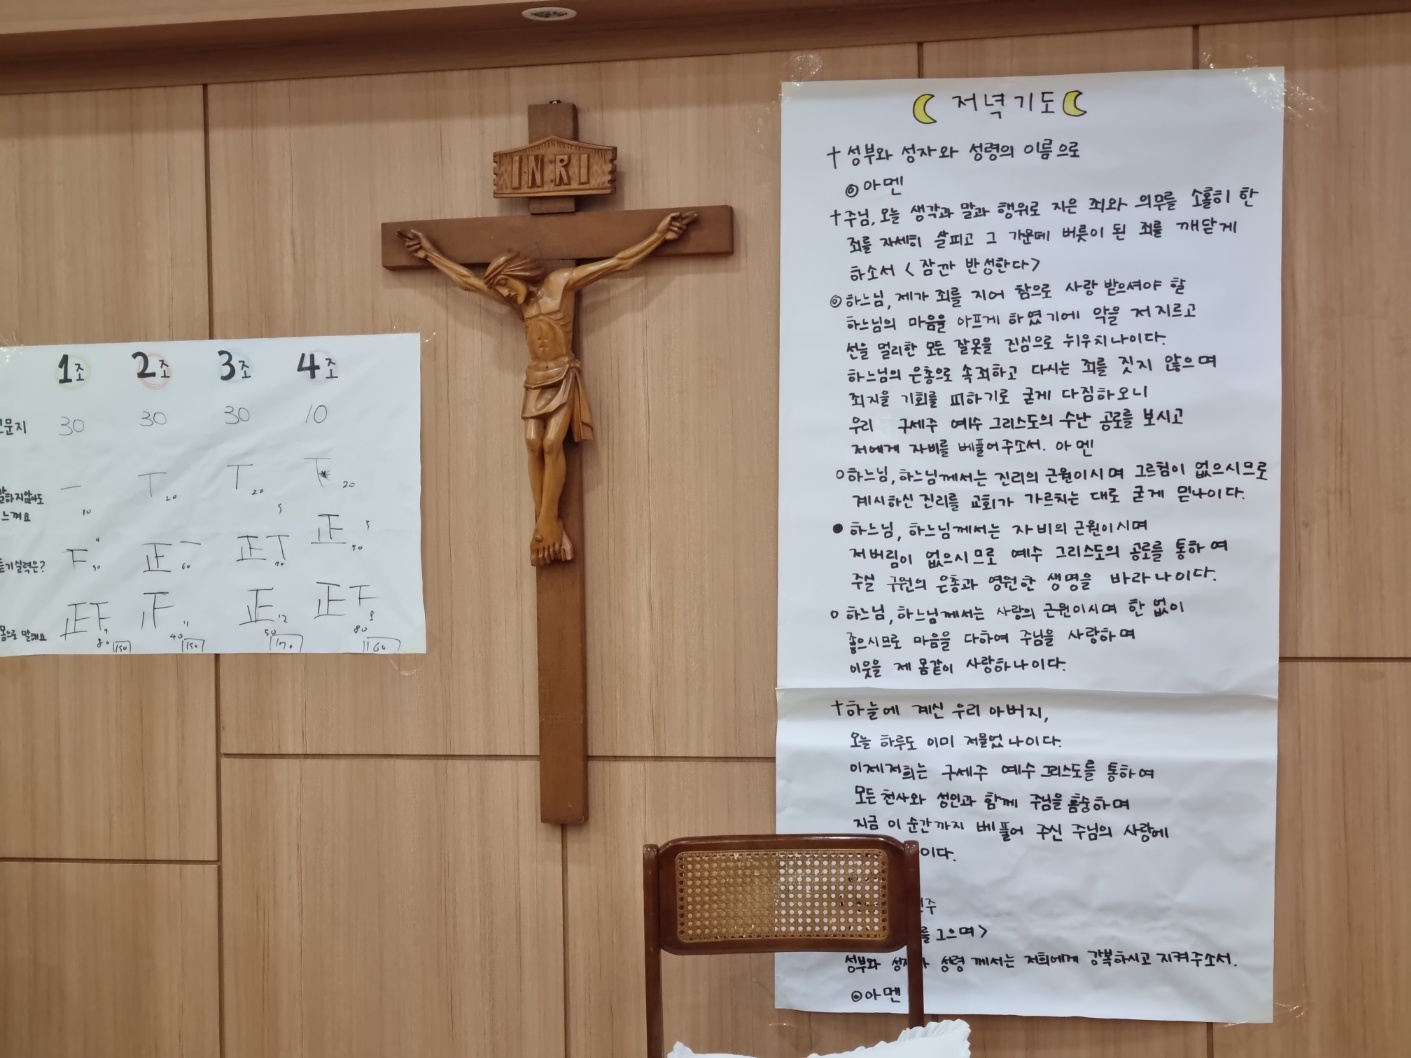 1조 2조 3조 4조
30 30 30 10
20 20 20
10
느껴요
正 正丅 正
正 正
몸으로 말해요
150 150 170 160
INRI
저녁기도
†성부와 성자와 성령의 이름으로
◎아멘
†주님, 오늘 생각과 말과 행위로 지은 죄와 의무를 소홀히 한
죄를 자세히 살피고 그 가운데 버릇이 된 죄를 깨닫게
하소서 <잠깐 반성한다>
◎하느님, 제가 죄를 지어 참으로 사랑 받으셔야 할
하느님의 마음을 아프게 하였기에 악을 저지르고
선을 멀리한 모든 잘못을 진심으로 뉘우치나이다.
하느님의 은총으로 속죄하고 다시는 죄를 짓지 않으며
죄지을 기회를 피하기로 굳게 다짐하오니
우리 구세주 예수 그리스도의 수난 공로를 보시고
저에게 자비를 베풀어주소서. 아멘
○하느님, 하느님께서는 진리의 근원이시며 그르침이 없으시므로
계시하신 진리를 교회가 가르치는 대로 굳게 믿나이다.
●하느님, 하느님께서는 자비의 근원이시며
저버림이 없으시므로 예수 그리스도의 공로를 통하여
주실 구원의 은총과 영원한 생명을 바라나이다.
○하느님, 하느님께서는 사랑의 근원이시며 한 없이
좋으시므로 마음을 다하여 주님을 사랑하며
이웃을 제 몸같이 사랑하나이다.
†하늘에 계신 우리 아버지,
오늘 하루도 이미 저물었나이다.
이제 저희는 구세주 예수 그리스도를 통하여
모든 천사와 성인과 함께 주님을 흠숭하며
지금 이 순간까지 베풀어 주신 주님의 사랑에
이다.
를 그으며>
성부와 성자와 성령 께서는 저희에게 강복하시고 지켜주소서.
◎아멘